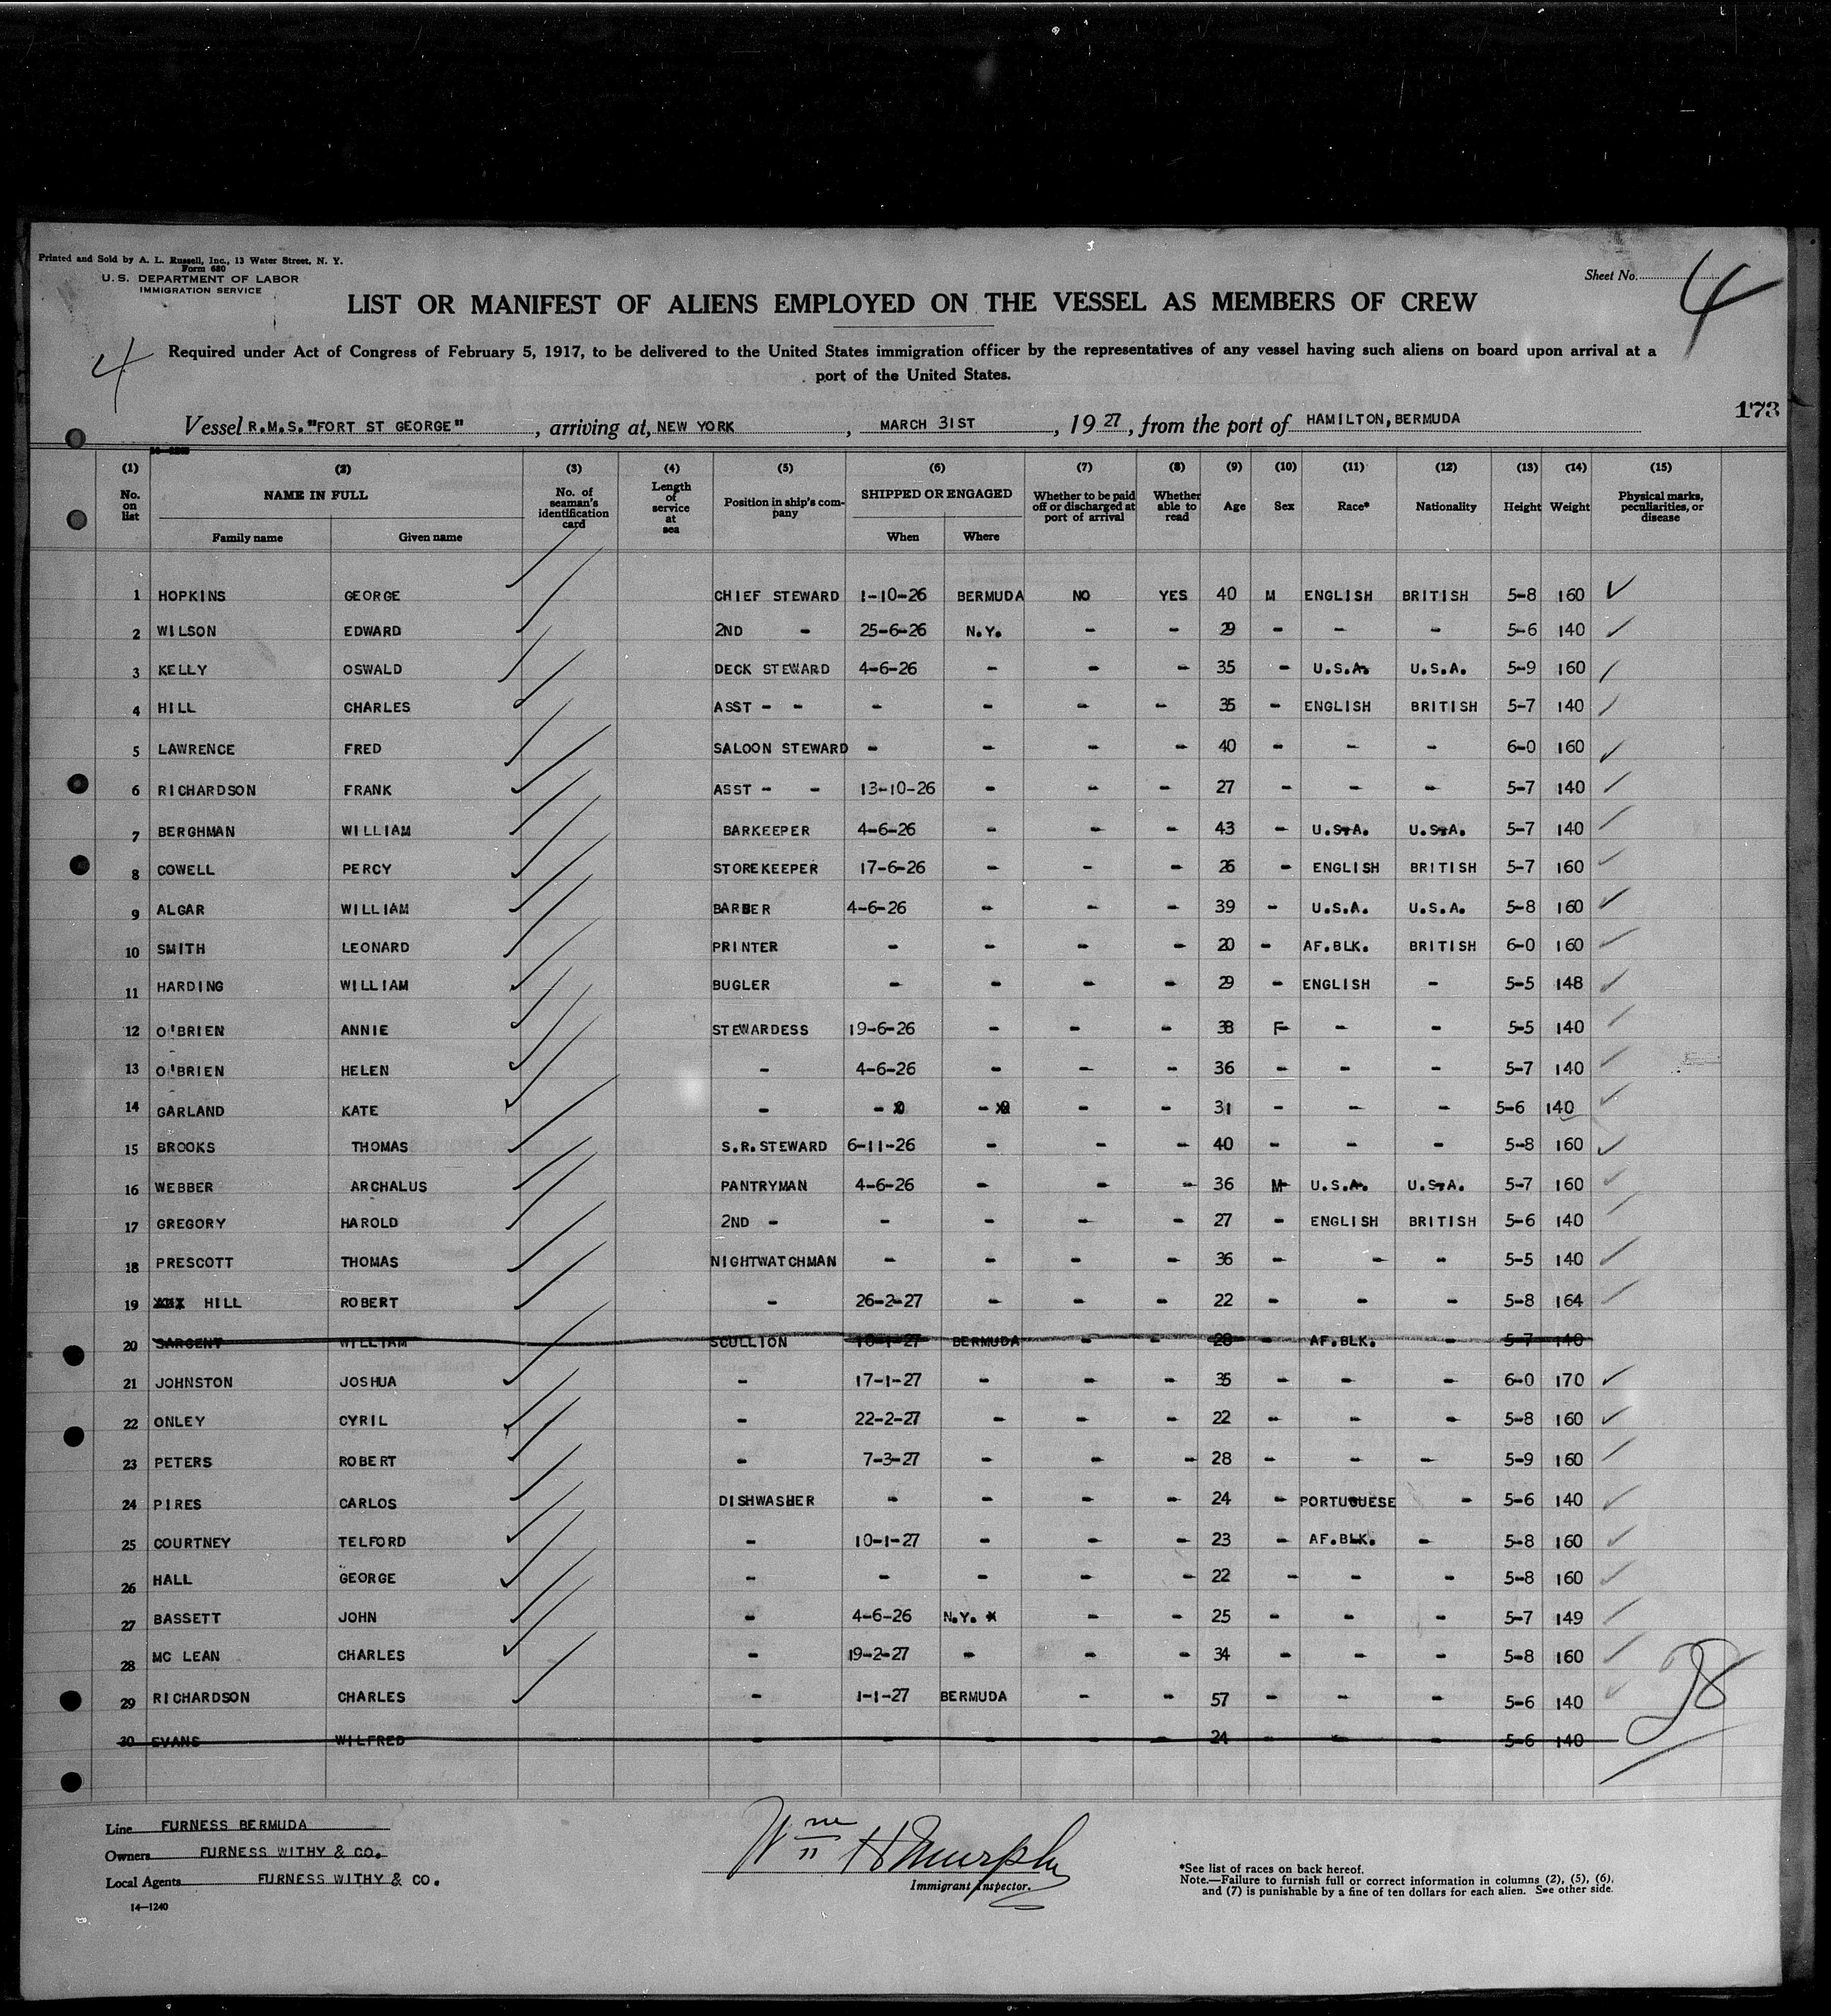 Printed and Sold by A. L. Russell, Inc., 13 Water Street, N. Y.
Form 680
U. S. DEPARTMENT OF LABOR
IMMIGRATION SERVICE
Sheet No. 4
LIST OR MANIFEST OF ALIENS EMPLOYED ON THE VESSEL AS MEMBERS OF CREW
4
Required under Act of Congress of February 5, 1917, to be delivered to the United States immigration officer by the representatives of any vessel having such aliens on board upon arrival at a
port of the United States.
173
Vessel R.M.S."FORT ST GEORGE", arriving at, NEW YORK, MARCH 31ST, 19 27, from the port of HAMILTON, BERMUDA
(1) (2) (3) (4) (5) (6) (7) (8) (9) (10) (11) (12) (13) (14) (15)
No. on list NAME IN FULL Family name Given name No. of seaman's identification card Length of service at sea Position in ship's company SHIPPED OR ENGAGED When Where Whether to be paid off or discharged at port of arrival Whether able to read Age Sex Race* Nationality Height Weight Physical marks, peculiarities, or disease
1 HOPKINS GEORGE CHIEF STEWARD 1-10-26 BERMUDA NO YES 40 M ENGLISH BRITISH 5-8 160
2 WILSON EDWARD 2ND - 25-6-26 N.Y. - - 29 - - - 5-6 140
3 KELLY OSWALD DECK STEWARD 4-6-26 - - - 35 - U.S.A. U.S.A. 5-9 160
4 HILL CHARLES ASST - - - - - - 35 - ENGLISH BRITISH 5-7 140
5 LAWRENCE FRED SALOON STEWARD - - - - 40 - - - 6-0 160
6 RICHARDSON FRANK ASST - - 13-10-26 - - - 27 - - - 5-7 140
7 BERGHMAN WILLIAM BARKEEPER 4-6-26 - - - 43 - U.S.A. U.S.A. 5-7 140
8 COWELL PERCY STOREKEEPER 17-6-26 - - - 26 - ENGLISH BRITISH 5-7 160
9 ALGAR WILLIAM BARBER 4-6-26 - - - 39 - U.S.A. U.S.A. 5-8 160
10 SMITH LEONARD PRINTER - - - - 20 - AF.BLK. BRITISH 6-0 160
11 HARDING WILLIAM BUGLER - - - - 29 - ENGLISH - 5-5 148
12 O'BRIEN ANNIE STEWARDESS 19-6-26 - - - 38 F - - 5-5 140
13 O'BRIEN HELEN - 4-6-26 - - - 36 - - - 5-7 140
14 GARLAND KATE - - - - - 31 - - - 5-6 140
15 BROOKS THOMAS S.R.STEWARD 6-11-26 - - - 40 - - - 5-8 160
16 WEBBER ARCHALUS PANTRYMAN 4-6-26 - - - 36 M U.S.A. U.S.A. 5-7 160
17 GREGORY HAROLD 2ND - - - - - 27 - ENGLISH BRITISH 5-6 140
18 PRESCOTT THOMAS NIGHTWATCHMAN - - - - 36 - - - 5-5 140
19 HILL ROBERT - 26-2-27 - - - 22 - - - 5-8 164
20 SARGENT WILLIAM SCULLION 10-1-27 BERMUDA - - 28 - AF.BLK. - 5-7 140
21 JOHNSTON JOSHUA - 17-1-27 - - - 35 - - - 6-0 170
22 ONLEY CYRIL - 22-2-27 - - - 22 - - - 5-8 160
23 PETERS ROBERT - 7-3-27 - - - 28 - - - 5-9 160
24 PIRES CARLOS DISHWASHER - - - - 24 - PORTUGUESE - 5-6 140
25 COURTNEY TELFORD - 10-1-27 - - - 23 - AF.BLK. - 5-8 160
26 HALL GEORGE - - - - - 22 - - - 5-8 160
27 BASSETT JOHN - 4-6-26 N.Y. - - 25 - - - 5-7 149
28 MC LEAN CHARLES - 19-2-27 - - - 34 - - - 5-8 160
29 RICHARDSON CHARLES - 1-1-27 BERMUDA - - 57 - - - 5-6 140
30 EVANS WILFRED - - - - - 24 - - - 5-6 140
28
Line FURNESS BERMUDA
Owners FURNESS WITHY & CO.
Local Agents FURNESS WITHY & CO.
14—1240
Wm H Murphy
Immigrant Inspector.
*See list of races on back hereof.
Note.—Failure to furnish full or correct information in columns (2), (5), (6),
and (7) is punishable by a fine of ten dollars for each alien. See other side.